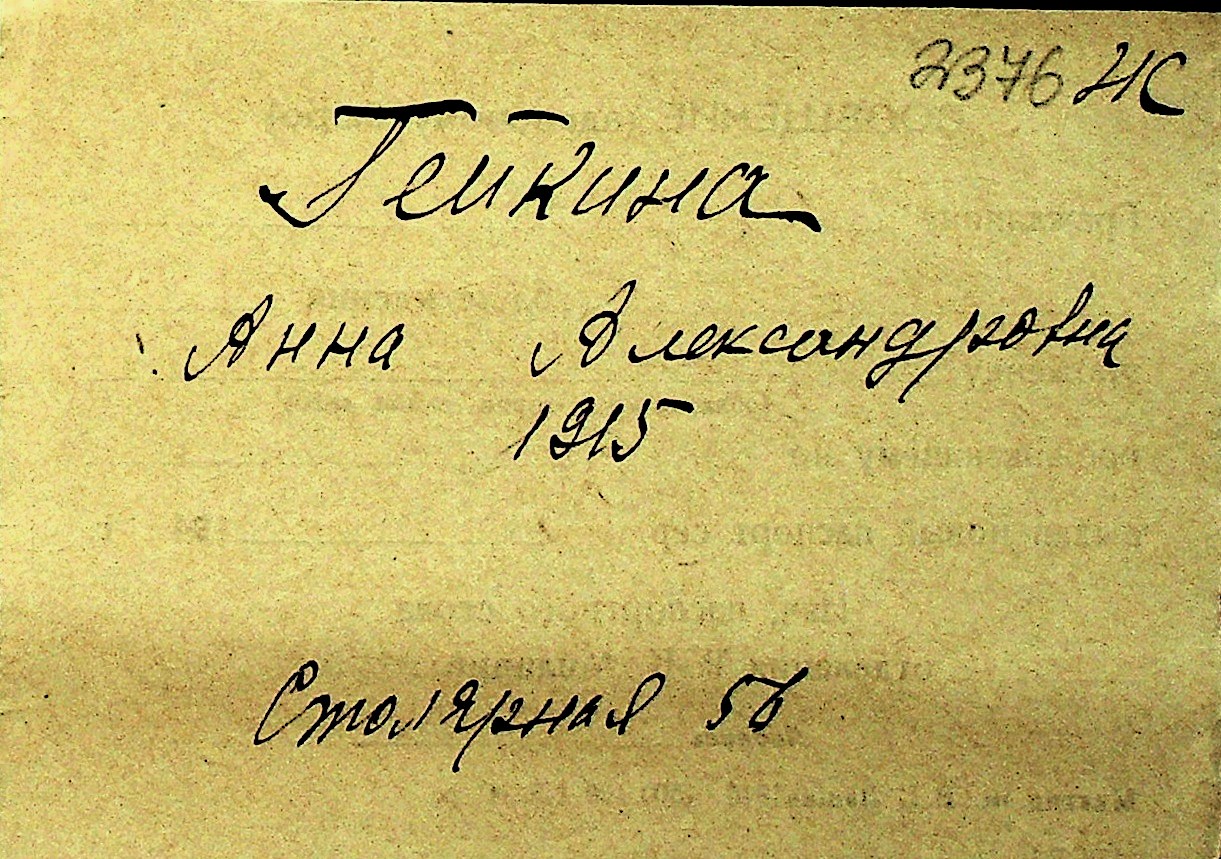 2376 ИС
Гейкина
Анна Александровна
1915
Столярная 5б